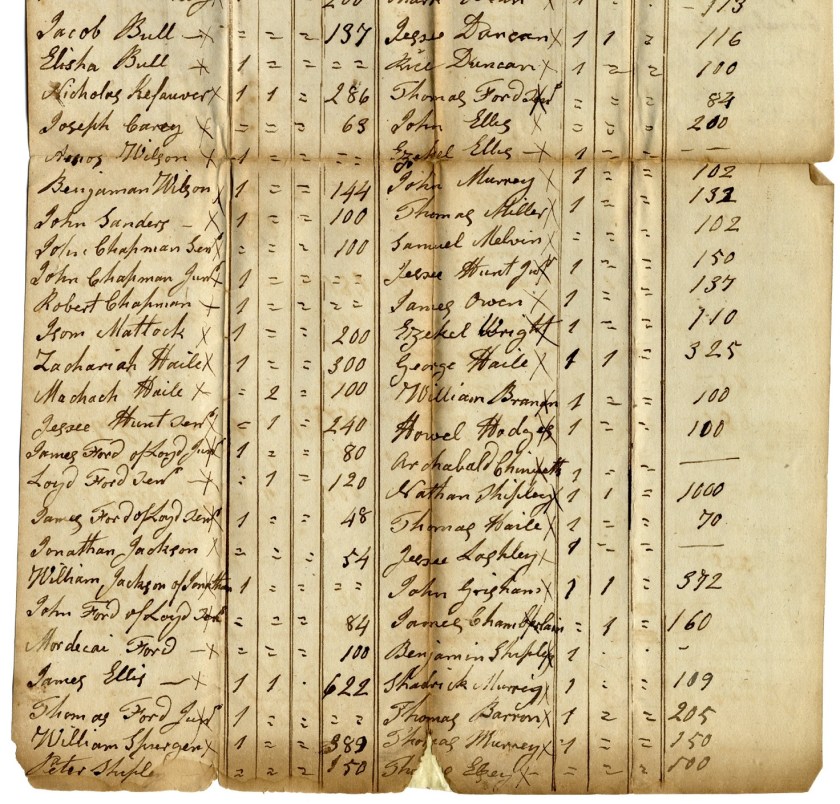 200
Jacob Bull - x = = = 137
Elisha Bull - x 1 = = = =
Nicholas Kefauver x 1 1 = 286
Joseph Carey x = = = 63
Amos Wilson x 1 = = = =
Benjaman Wilson x 1 = = 144
John Sanders - x 1 = = 100
John Chapman Senr x = = = 100
John Chapman Junr x 1 = = = =
Robert Chapman - x 1 = = = =
Isom Mattock x 1 = = 200
Zachariah Haile x 1 = = 300
Machach Haile x = 2 = 100
Jessee Hunt Senr x = 1 = 240
James Ford of Loyd Junr x 1 = = 80
Loyd Ford Senr - x = 1 = 120
James Ford of Loyd Senr x 1 = = 48
Jonathan Jackson x = = = 54
William Jackson of Jonathan 1 = = = =
John Ford of Loyd Senr x = = = 84
Mordecai Ford - x = = = 100
James Ellis - x 1 1 · 622
Thomas Ford Junr x 1 = = = =
William Spurgen x 1 = = 389
Peter Shiple = = = 150
1 = = 113
Jesse Duncan x 1 1 = 116
Rice Duncan x 1 = = 100
Thomas Ford Senr x = = = 84
John Ellis x = = = 200
Ezekel Ellis - x 1 = = — —
John Murrey x 1 = = 102
Thomas Miller x 1 = = 132
Samuel Melvin x = = = 102
Jessee Hunt Junr x 1 = = 150
James Owen x 1 = = 137
Ezekel Wright x 1 = = 110
George Haile x 1 1 = 325
William Branan 1 = = 100
Howel Hodges x 1 = = 100
Archabald Chineth = = = —
Nathan Shipley x 1 1 = 1000
Thomas Haile x 1 = = 70
Jessee Loshley x 1 = = —
John Grisham x 1 1 = 372
James Chamberlain = 1 = 160
Benjamin Shipley x 1 · · -
Shadrick Murrey x 1 = = 109
Thomas Barron x 1 = = 205
Thomas Murrey x 1 = = 150
= = = 100